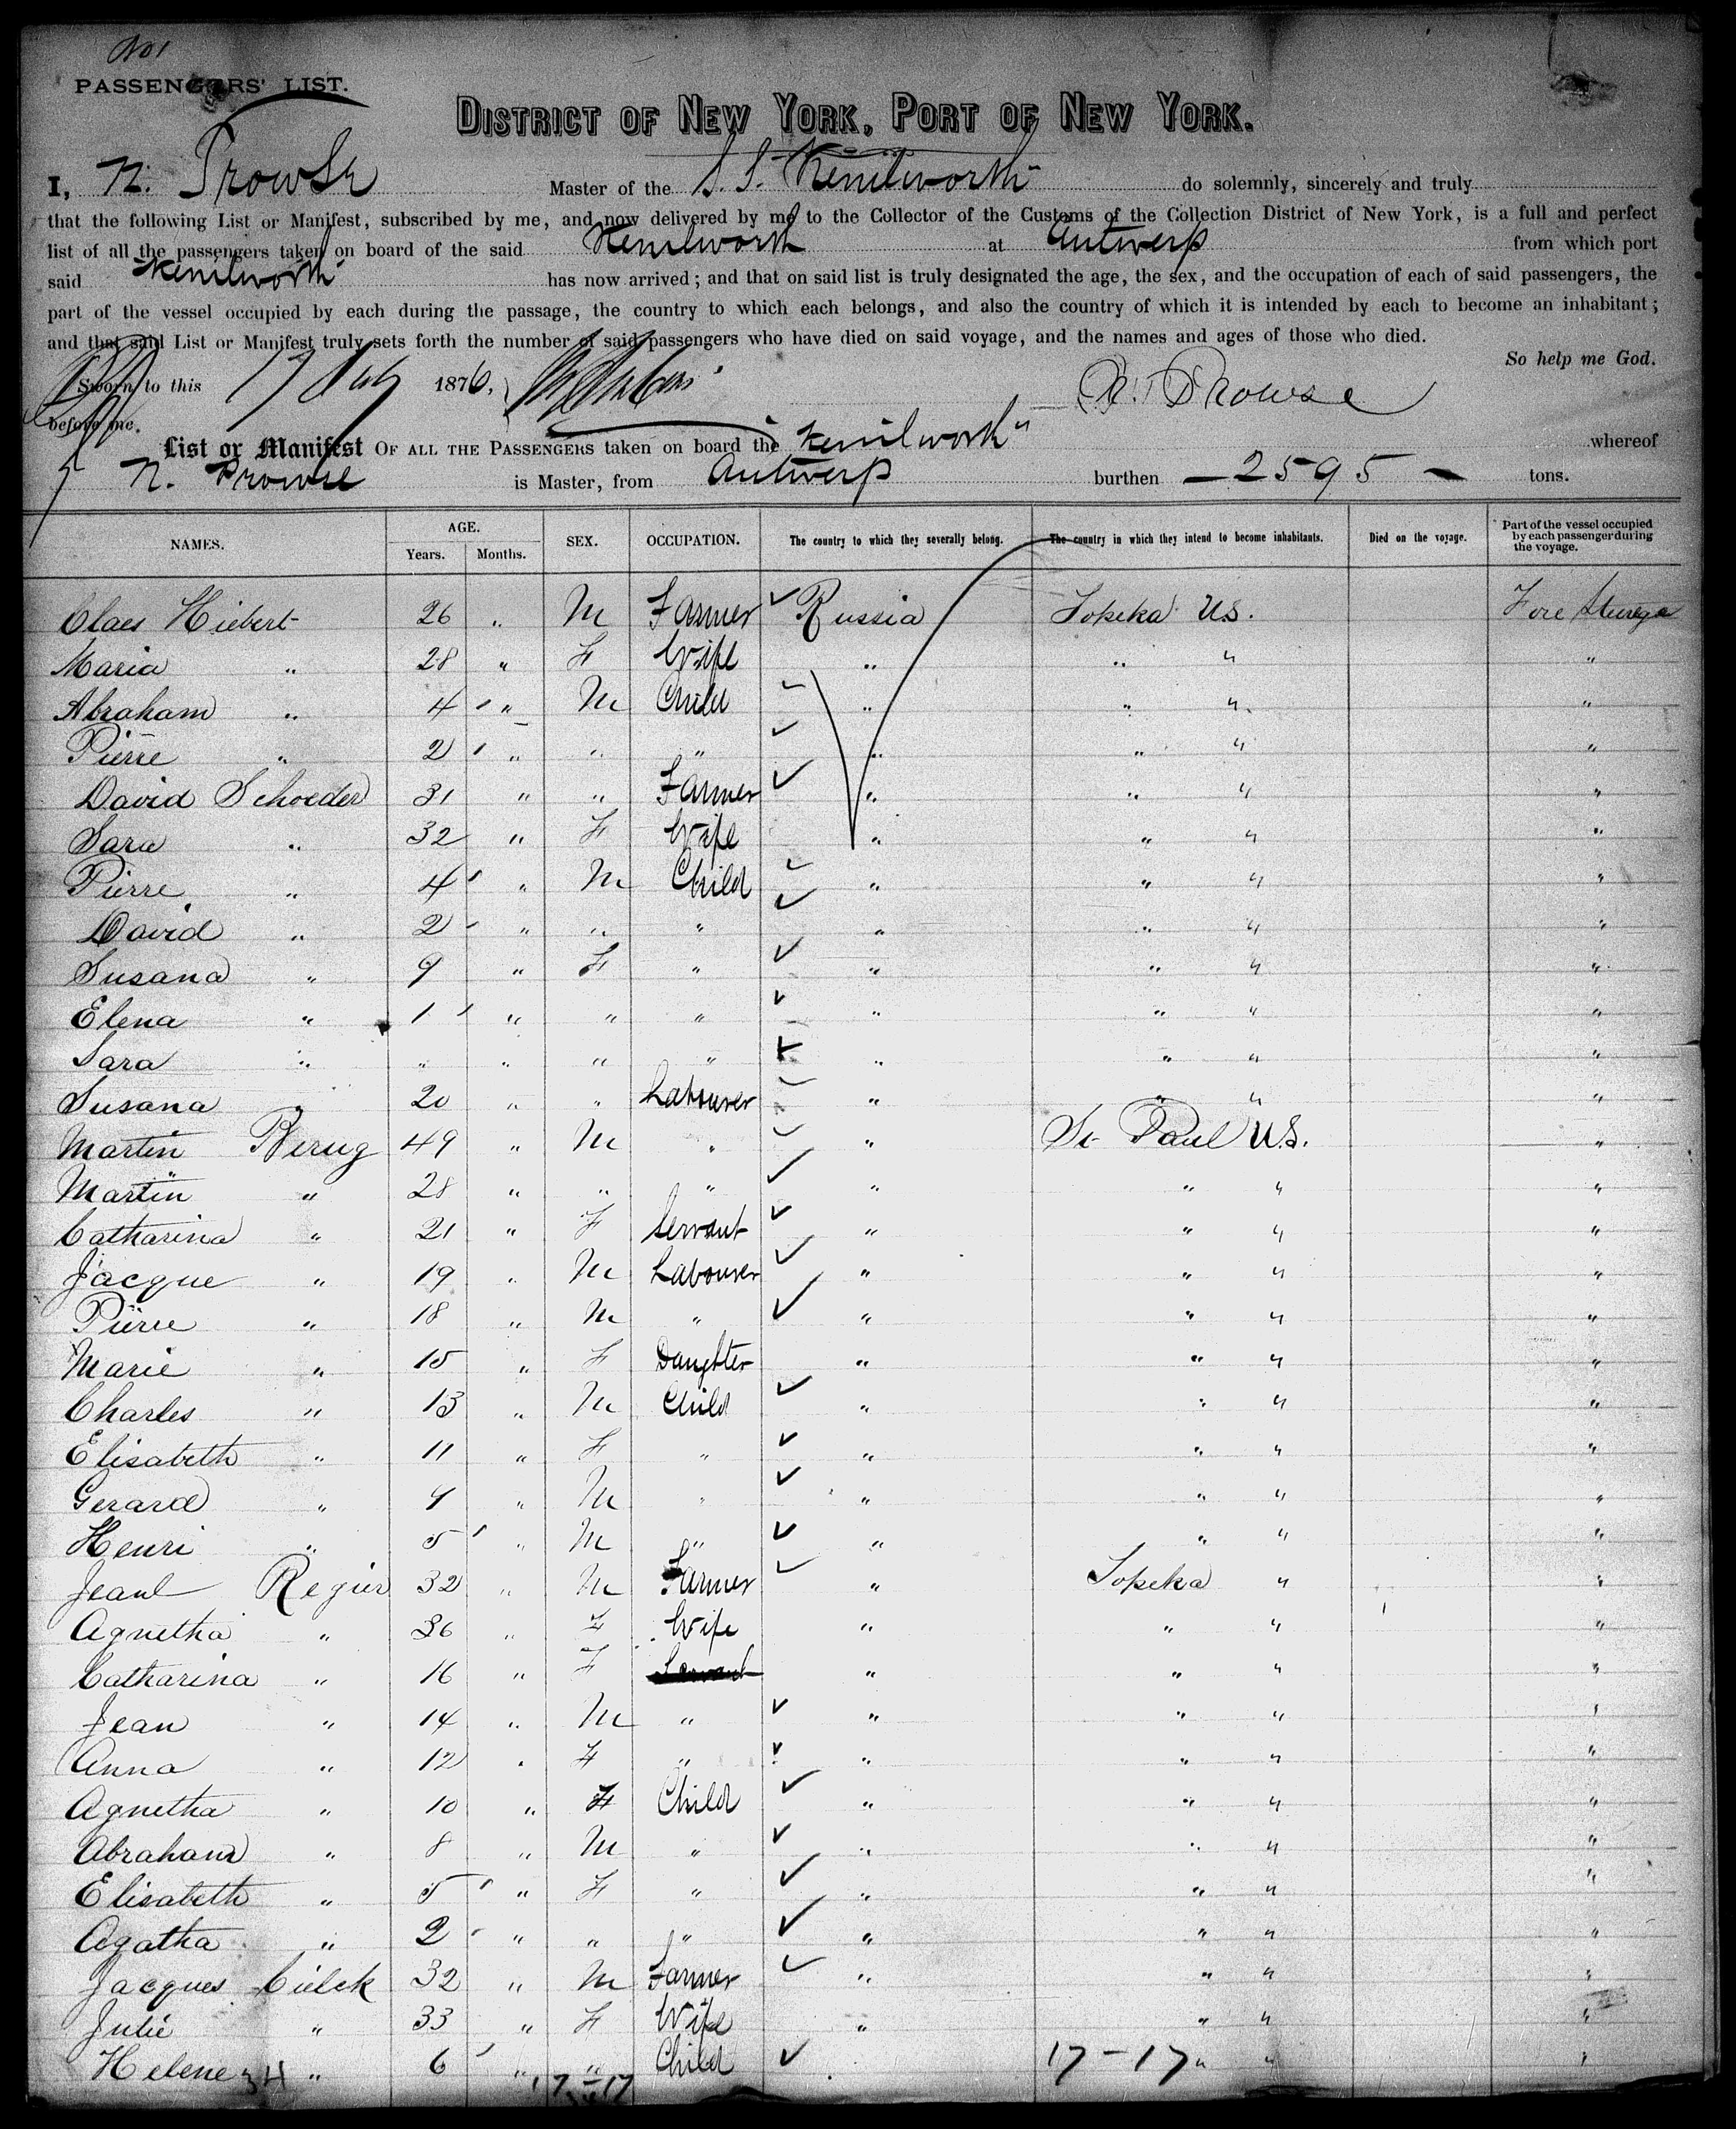 No 1
PASSENGERS' LIST.
DISTRICT OF NEW YORK, PORT OF NEW YORK.
I, N. Prowse Master of the S.S. Kenilworth do solemnly, sincerely and truly
that the following List or Manifest, subscribed by me, and now delivered by me to the Collector of the Customs of the Collection District of New York, is a full and perfect
list of all the passengers taken on board of the said Kenilworth at Antwerp from which port
said Kenilworth has now arrived; and that on said list is truly designated the age, the sex, and the occupation of each of said passengers, the
part of the vessel occupied by each during the passage, the country to which each belongs, and also the country of which it is intended by each to become an inhabitant;
and that said List or Manifest truly sets forth the number of said passengers who have died on said voyage, and the names and ages of those who died.
So help me God.
Sworn to this 17 July 1876, N. Prowse
before me.
List or Manifest OF ALL THE PASSENGERS taken on board the "Kenilworth" whereof
N. Prowse is Master, from Antwerp burthen — 2595 — tons.
NAMES. AGE. Years. Months. SEX. OCCUPATION. The country to which they severally belong. The country in which they intend to become inhabitants. Died on the voyage. Part of the vessel occupied by each passenger during the voyage.
Claes Hiebert 26 " M Farmer Russia Topeka U.S. Fore Steerage
Maria " 28 " F Wife " " " "
Abraham " 4 " M Child " " " "
Pierre " 2 " " " " " " "
David Schoeder 31 " " Farmer " " " "
Sara " 32 " F Wife " " " "
Pierre " 4 " M Child " " " "
David " 2 " " " " " " "
Susana " 9 " F " " " " "
Elena " 1 " " " " " " "
Sara " " " " " " " " "
Susana " 20 " " Labourer " " " "
Martin Berug 49 " M " " St Paul U.S. "
Martin " 28 " " " " " " "
Catharina " 21 " F Servant " " " "
Jacque " 19 " M Labourer " " " "
Pierre " 18 " M " " " " "
Marie " 15 " F Daughter " " " "
Charles " 13 " M Child " " " "
Elisabeth " 11 " F " " " " "
Gerard " 9 " M " " " " "
Henri " 5 " M " " " " "
Jean Regier 32 " M Farmer " Topeka " "
Agnetha " 36 " F Wife " " " "
Catharina " 16 " F Servant " " " "
Jean " 14 " M " " " " "
Anna " 12 " F " " " " "
Agnetha " 10 " F Child " " " "
Abraham " 8 " M " " " " "
Elisabeth " 5 " F " " " " "
Agatha " 2 " " " " " " "
Jacques Cielck 32 " M Farmer " " " "
Julie " 33 " F Wife " " " "
Helene " 6 " " Child " " "
34 17-17 17-17